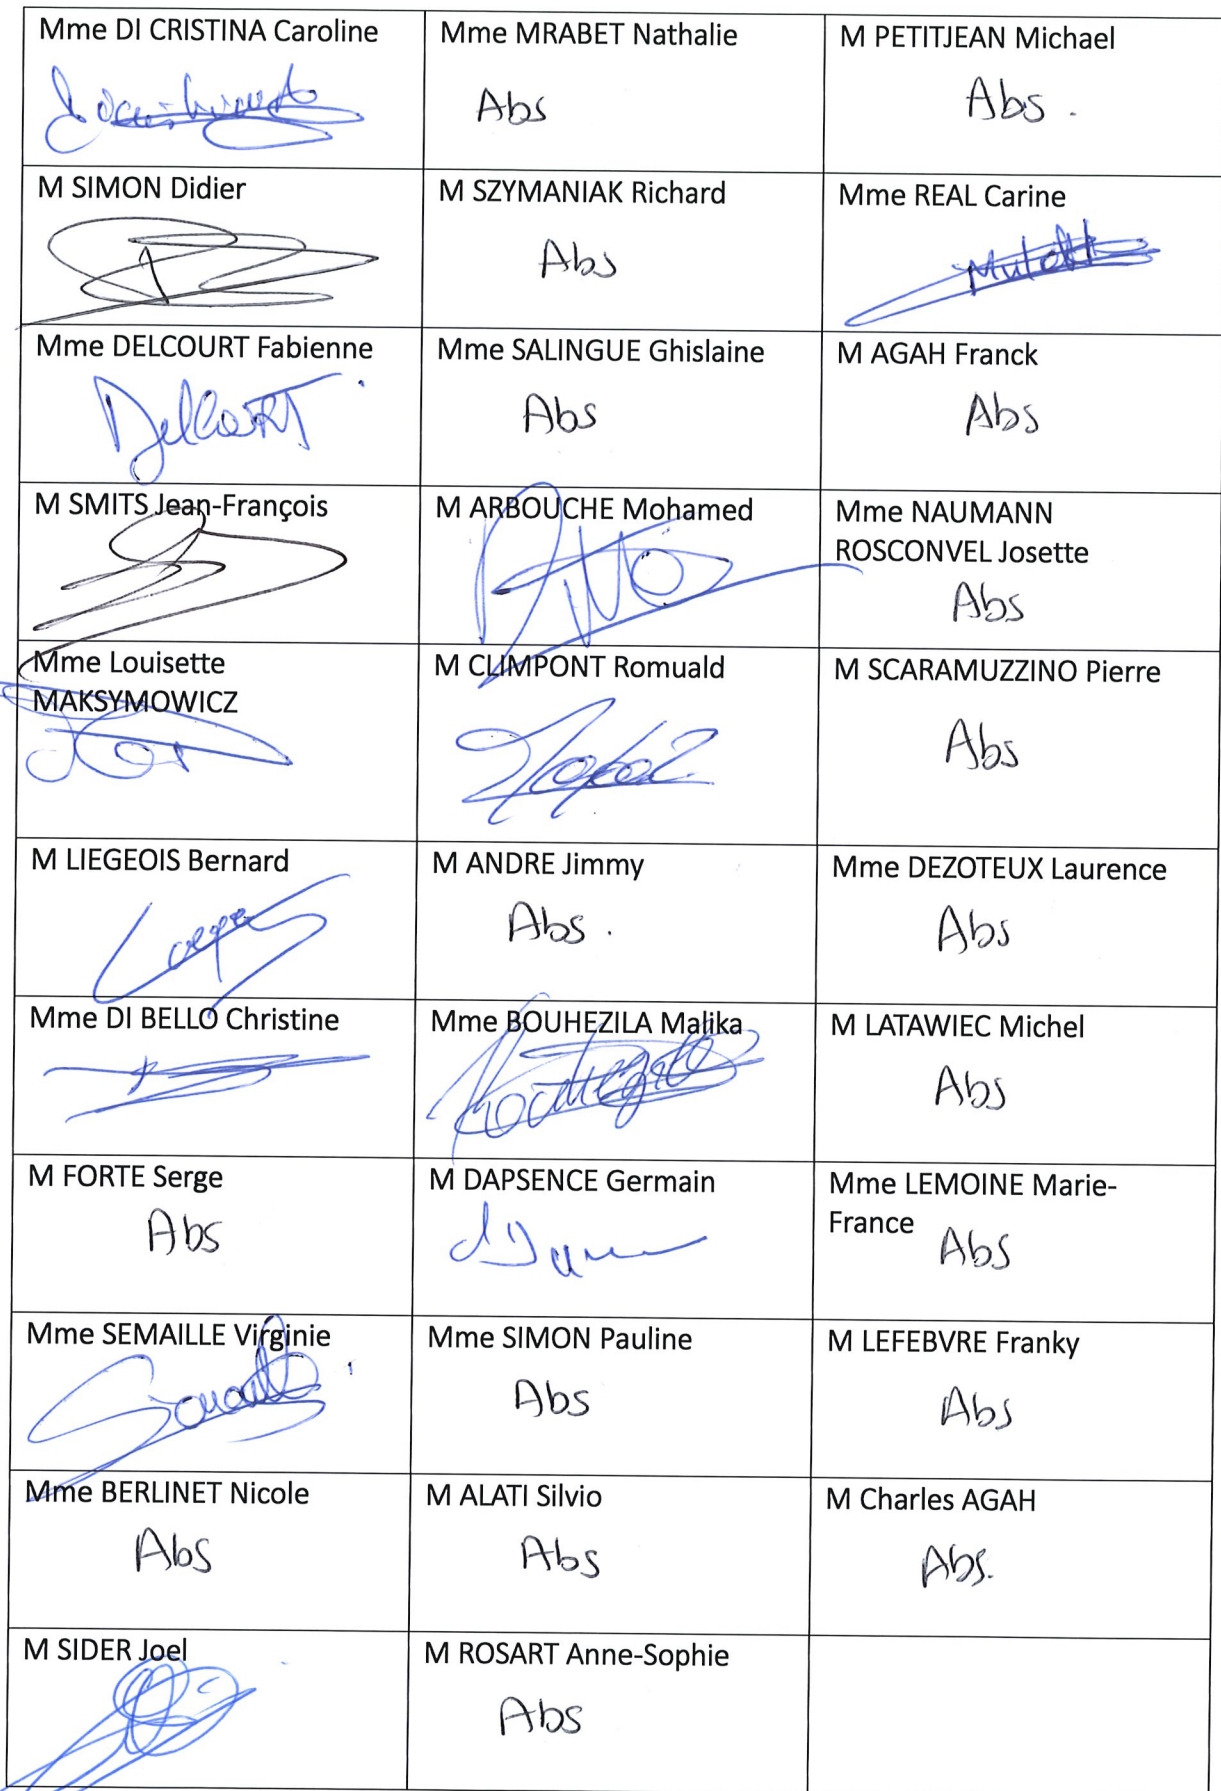 Mme DI CRISTINA Caroline
Mme MRABET Nathalie
Abs
M PETITJEAN Michael
Abs .
M SIMON Didier
M SZYMANIAK Richard
Abs
Mme REAL Carine
Mme DELCOURT Fabienne
Delcourt
Mme SALINGUE Ghislaine
Abs
M AGAH Franck
Abs
M SMITS Jean-François
M ARBOUCHE Mohamed
Mme NAUMANN
ROSCONVEL Josette
Abs
Mme Louisette
MAKSYMOWICZ
M CLIMPONT Romuald
M SCARAMUZZINO Pierre
Abs
M LIEGEOIS Bernard
M ANDRE Jimmy
Abs .
Mme DEZOTEUX Laurence
Abs
Mme DI BELLO Christine
Mme BOUHEZILA Malika
M LATAWIEC Michel
Abs
M FORTE Serge
Abs
M DAPSENCE Germain
Mme LEMOINE Marie-
France
Abs
Mme SEMAILLE Virginie
Mme SIMON Pauline
Abs
M LEFEBVRE Franky
Abs
Mme BERLINET Nicole
Abs
M ALATI Silvio
Abs
M Charles AGAH
Abs.
M SIDER Joel
M ROSART Anne-Sophie
Abs